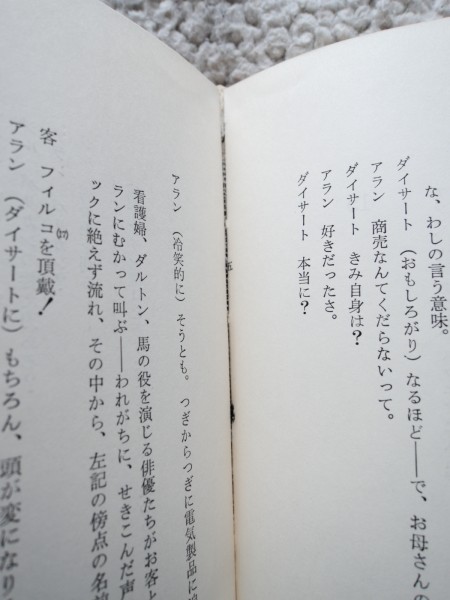 な、わしの言う意味。
ダイサート （おもしろがり）なるほど――で、お母さんの
アラン 商売なんてくだらないって。
ダイサート きみ自身は？
アラン 好きだったさ。
ダイサート 本当に？
アラン （冷笑的に）そうとも。つぎからつぎに電気製品に
看護婦、ダルトン、馬の役を演じる俳優たちがお客と
ランにむかって叫ぶ――われがちに、せきこんだ声
ックに絶えず流れ、その中から、左記の傍点の名
客 フィルコを頂戴！
アラン （ダイサートに）もちろん、頭が変になり